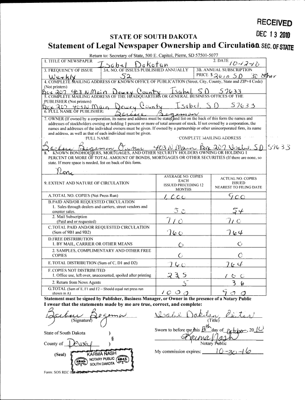 RECEIVED
DEC 13 2010
SEC. OF STATE
STATE OF SOUTH DAKOTA
Statement of Legal Newspaper Ownership and Circulation
Return to: Secretary of State, 500 E. Capitol, Pierre, SD 57501-5077
1. TITLE OF NEWSPAPER
Isabel Dakotan
2. DATE
3. FREQUENCY OF ISSUE
Weekly
3A. NO. OF ISSUES PUBLISHED ANNUALLY
52
3B. ANNUAL SUBSCRIPTION
PRICE
4. COMPLETE MAILING ADDRESS OF KNOWN OFFICE OF PUBLICATION (Street, City, County, State and ZIP+4 Code)
(Not printers)
Box 207 Main Dewey County Isabel SD 57633
5. COMPLETE MAILING ADDRESS OF THE HEADQUARTERS OR GENERAL BUSINESS OFFICES OF THE
PUBLISHER (Not printers)
Box 207 Main Dewey County Isabel, SD 57633
6. FULL NAME OF PUBLISHER:
7. OWNER (If owned by a corporation, its name and address must be stated and also the names and
addresses of stockholders owning or holding 1 percent or more of total amount of stock. If not owned by a corporation, the
names and addresses of the individual owners must be given. If owned by a partnership or other unincorporated firm, its name
and address, as well as that of each individual must be given.
FULL NAME
COMPLETE MAILING ADDRESS
Main Box 207 Isabel SD 57633
8. KNOWN BONDHOLDERS, MORTGAGES, AND OTHER SECURITY HOLDERS OWNING OR HOLDING 1
PERCENT OR MORE OF TOTAL AMOUNT OF BONDS, MORTGAGES OR OTHER SECURITIES (If there are none, so
state. If more space is needed, list on back of this form.
None
9. EXTENT AND NATURE OF CIRCULATION
AVERAGE NO. COPIES
EACH
ISSUED PRECEDING 12
MONTHS
ACTUAL NO. COPIES
ISSUED
NEAREST TO FILING DATE
A. TOTAL NO. COPIES (Net Press Run)
1,000
900
B. PAID AND/OR REQUESTED CIRCULATION
1. Sales through dealers and carriers, street vendors and
counter sales.
54
2. Mail Subscription
(Paid and or requested)
710
710
C. TOTAL PAID AND/OR REQUESTED CIRCULATION
(Sum of 9B1 and 9B2)
760
764
D. FREE DISTRIBUTION
1. BY MAIL, CARRIER OR OTHER MEANS
0
0
2. SAMPLES, COMPLIMENTARY AND OTHER FREE
COPIES
0
0
E. TOTAL DISTRIBUTION (Sum of C, D1 and D2)
760
764
F. COPIES NOT DISTRIBUTED
1. Office use, left over, unaccounted, spoiled after printing
235
100
2. Return from News Agents
5
36
G. TOTAL (Sum of E, F1 and F2 - Should equal net press run
shown in A.)
1000
900
Statement must be signed by Publisher, Business Manager, or Owner in the presence of a Notary Public
I swear that the statements made by me are true, correct, and complete:
(Signature)
(Title)
State of South Dakota
County of Dewey
(Seal)
KARMA NASH
NOTARY PUBLIC
SOUTH DAKOTA
Sworn to before me this
Notary Public
My commission expires: